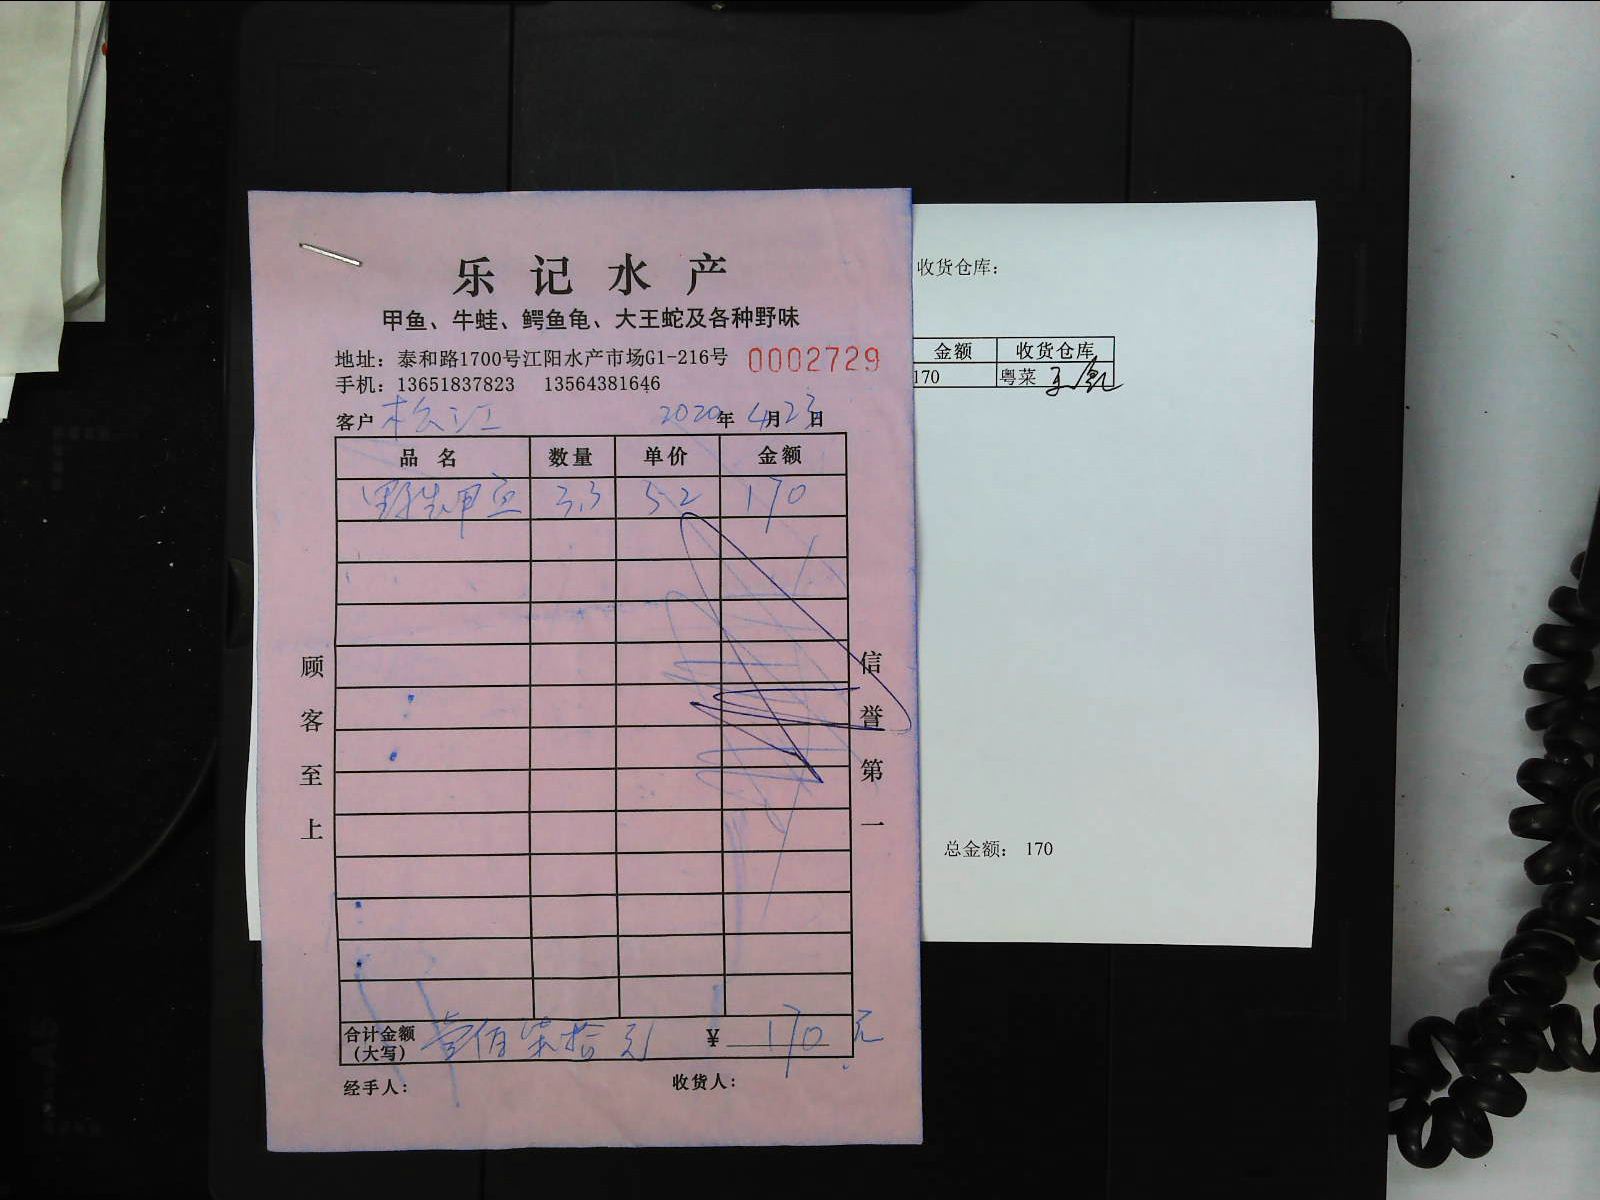 乐记水产
甲鱼、牛蛙、鳄鱼龟、大王蛇及各种野味
地址：泰和路1700号江阳水产市场G1-216号 0002729
手机：13651837823 13564381646
客户 松江 2020年4月23日
品名 数量 单价 金额
野生甲鱼 3.3 52 170
顾客至上
信誉第一
合计金额（大写） 壹佰柒拾元 ¥170元
经手人： 收货人：
收货仓库：
金额 收货仓库
170 粤菜
总金额： 170